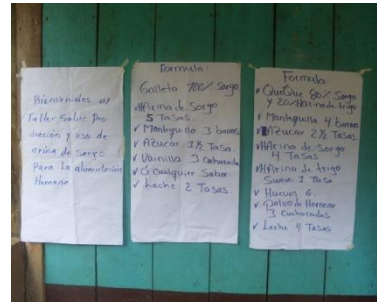 Bienvenidos al
Taller Sobre Pro-
ducción y uso de
arina de sorgo
Para La alimentación
Humana
Formula:
Galleta 100% Sorgo
✓Harina de Sorgo
5 Tasas.
✓ Mantequilla 3 barras
✓ Azucar 1½ Tasa.
✓ Vainilla 3 Cucharada
✓ o Cualquier Sabor
✓ Leche 2 Tasas
Formula
✓ QueQue 80% Sorgo
y 20% Harina de trigo
✓ Mantequilla 4 barras
✓ Azucar 2½ Tasas.
✓ Harina de sorgo
4 Tasas
✓ Harina de trigo
Suave 1 Tasa
✓ Huevos 6
✓ Polvo de Hornear
3 Cucharadas
✓ Leche 4 Tasas